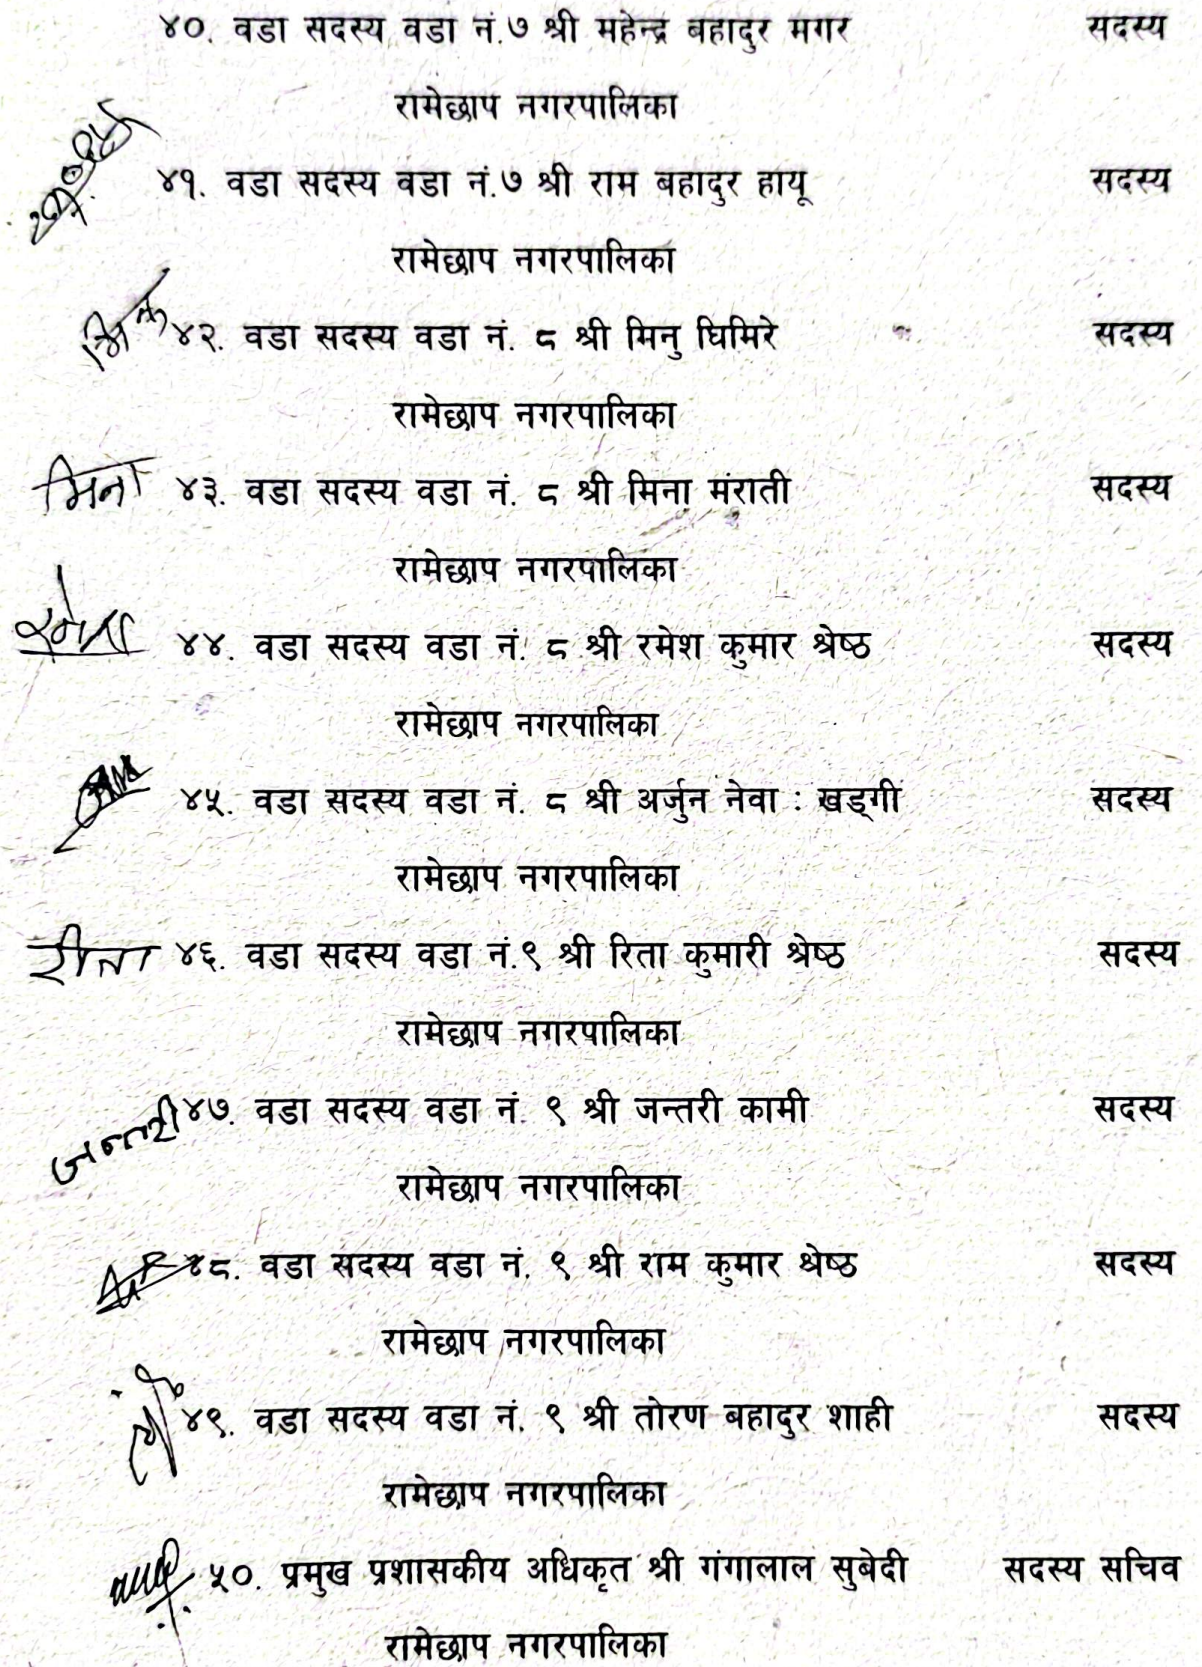 ४०. वडा सदस्य वडा नं.७ श्री महेन्द्र बहादुर मगर सदस्य
रामेछाप नगरपालिका
४१. वडा सदस्य वडा नं.७ श्री राम बहादुर हायू सदस्य
रामेछाप नगरपालिका
४२. वडा सदस्य वडा नं. ८ श्री मिनु घिमिरे सदस्य
रामेछाप नगरपालिका
मिना ४३. वडा सदस्य वडा नं. ८ श्री मिना मंराती सदस्य
रामेछाप नगरपालिका
४४. वडा सदस्य वडा नं. ८ श्री रमेश कुमार श्रेष्ठ सदस्य
रामेछाप नगरपालिका
४५. वडा सदस्य वडा नं. ८ श्री अर्जुन नेवा : खड्गी सदस्य
रामेछाप नगरपालिका
रीता ४६. वडा सदस्य वडा नं.९ श्री रिता कुमारी श्रेष्ठ सदस्य
रामेछाप नगरपालिका
जन्तरी ४७. वडा सदस्य वडा नं. ९ श्री जन्तरी कामी सदस्य
रामेछाप नगरपालिका
४८. वडा सदस्य वडा नं. ९ श्री राम कुमार श्रेष्ठ सदस्य
रामेछाप नगरपालिका
४९. वडा सदस्य वडा नं. ९ श्री तोरण बहादुर शाही सदस्य
रामेछाप नगरपालिका
५०. प्रमुख प्रशासकीय अधिकृत श्री गंगालाल सुबेदी सदस्य सचिव
रामेछाप नगरपालिका